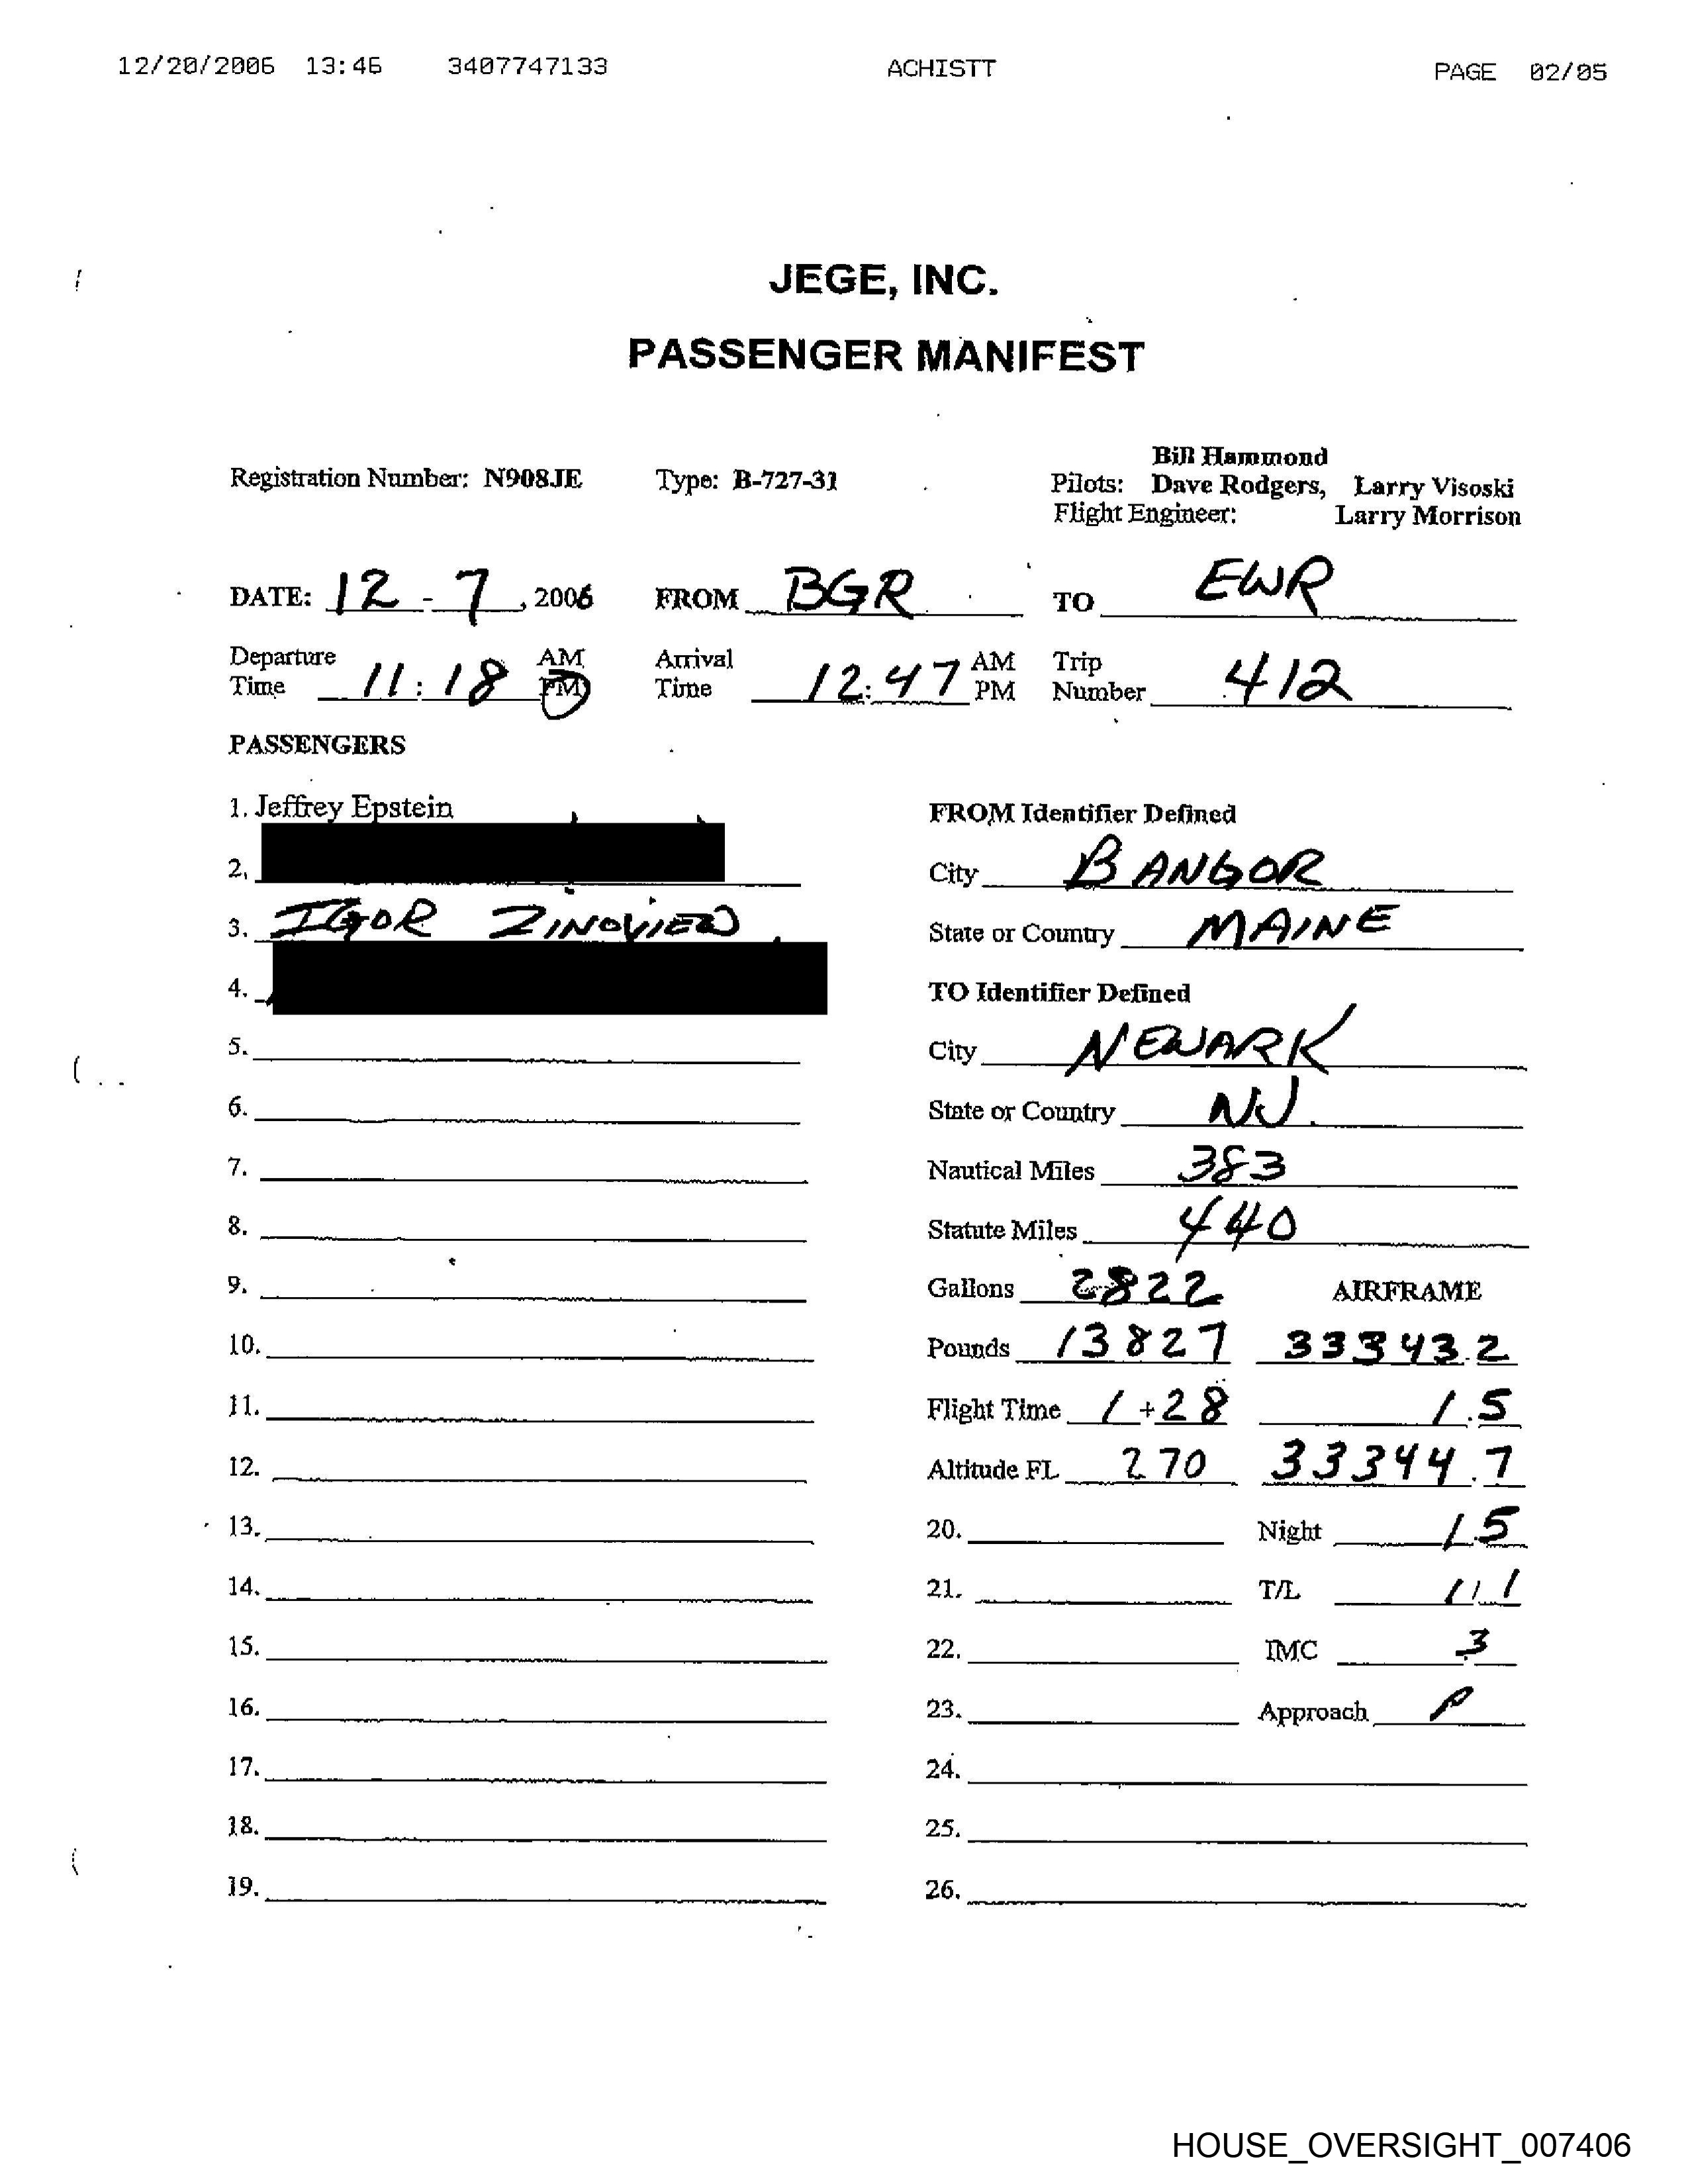 12/20/2006 13:46 3407747133 ACHISTT PAGE 02/05
JEGE, INC.
PASSENGER MANIFEST
Bill Hammond
Registration Number: N908JE Type: B-727-31 Pilots: Dave Rodgers, Larry Visoski
Flight Engineer: Larry Morrison
DATE: 12-7, 2006 FROM BGR TO EWR
Departure Time 11:18 AM PM Arrival Time 12:47 AM PM Trip Number 412
PASSENGERS
1. Jeffrey Epstein
FROM Identifier Defined
2.
City BANGOR
3. IGOR ZINOVIEW
State or Country MAINE
4.
TO Identifier Defined
5.
City NEWARK
6.
State or Country NJ.
7.
Nautical Miles 383
8.
Statute Miles 440
9.
Gallons 2822 AIRFRAME
10.
Pounds 13827 33343.2
11.
Flight Time 1+28 1.5
12.
Altitude FL 270 33344.7
13.
20. Night 1.5
14.
21. T/L 1/1
15.
22. IMC .3
16.
23. Approach P
17.
24.
18.
25.
19.
26.
HOUSE_OVERSIGHT_007406